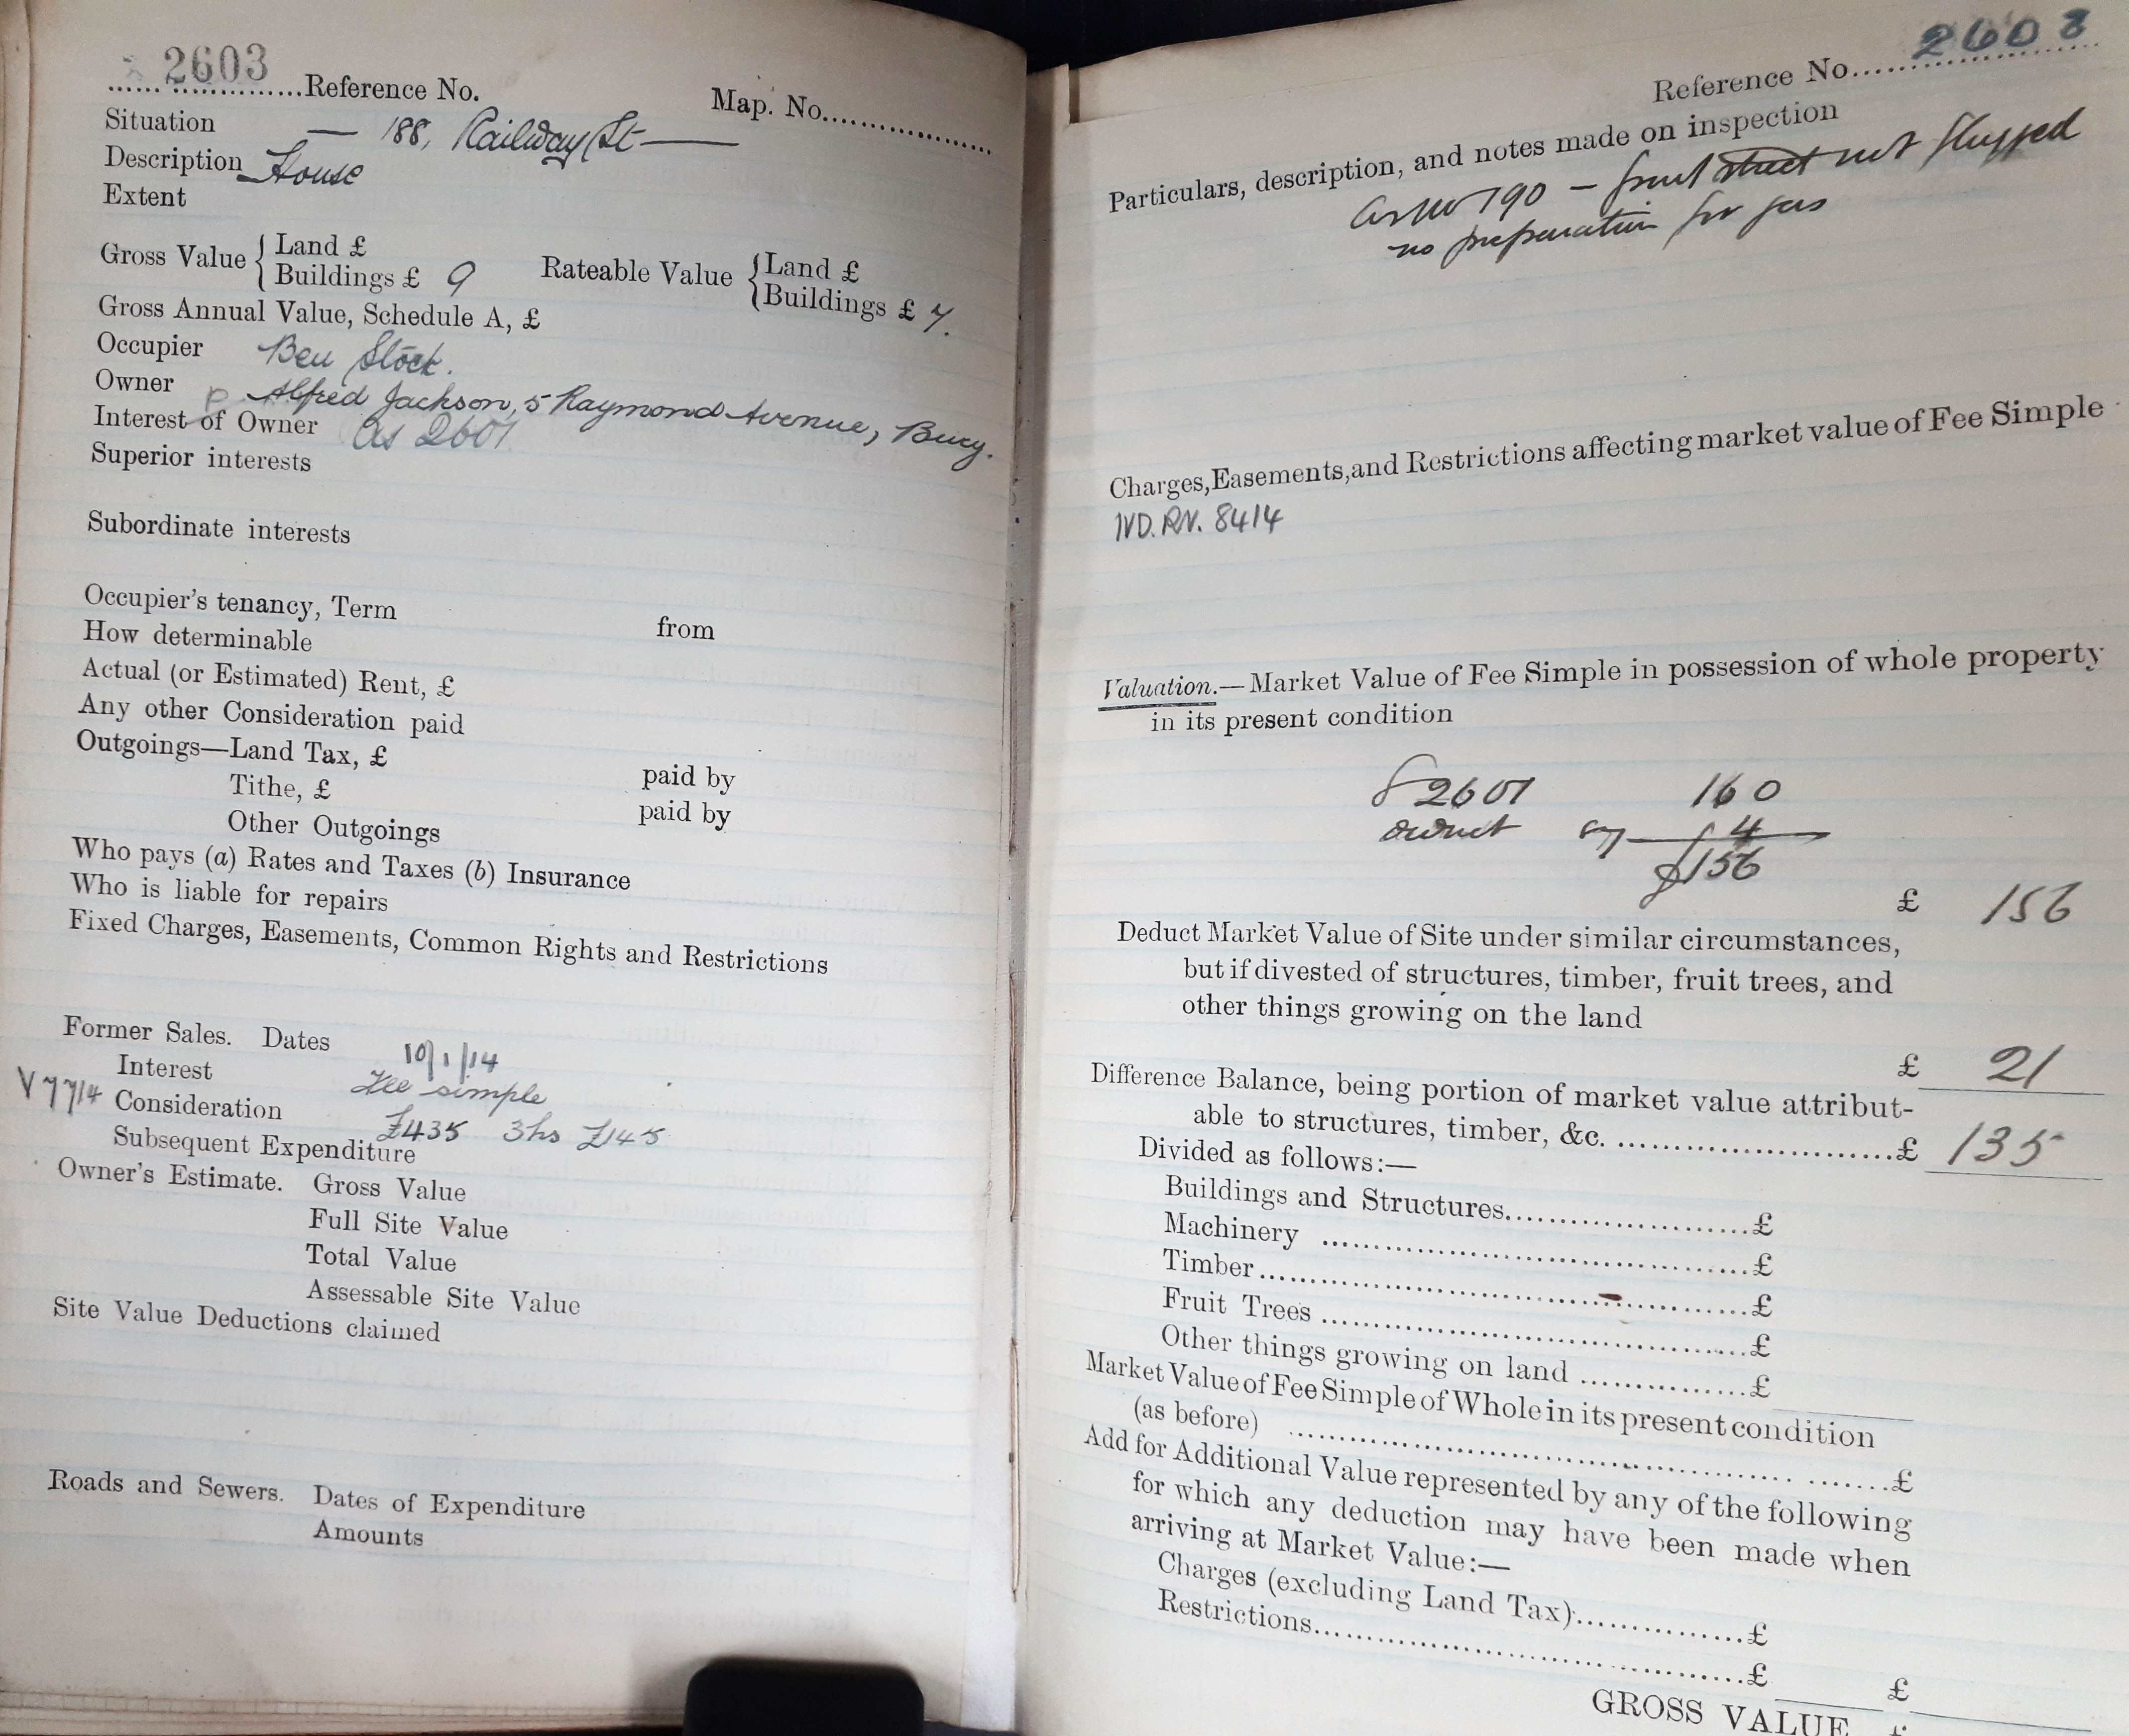 2603
Reference No. Map. No.
Situation — 188, Railway St —
Description House
Extent
Gross Value { Land £
Buildings £ 9
Rateable Value { Land £
Buildings £ 7.
Gross Annual Value, Schedule A, £
Occupier Ben Stock.
Owner Alfred Jackson, 5 Raymond Avenue, Bury.
Interest of Owner As 2601
Superior interests
Subordinate interests
Occupier's tenancy, Term from
How determinable
Actual (or Estimated) Rent, £
Any other Consideration paid
Outgoings—Land Tax, £ paid by
Tithe, £ paid by
Other Outgoings
Who pays (a) Rates and Taxes (b) Insurance
Who is liable for repairs
Fixed Charges, Easements, Common Rights and Restrictions
Former Sales. Dates 10/1/14
Interest Fee simple
V 7 7/14 Consideration £435 3hs £145
Subsequent Expenditure
Owner's Estimate. Gross Value
Full Site Value
Total Value
Assessable Site Value
Site Value Deductions claimed
Roads and Sewers. Dates of Expenditure
Amounts
Reference No. 2603
Particulars, description, and notes made on inspection
As no 190 — front street not flagged
no preparation for gas
Charges, Easements, and Restrictions affecting market value of Fee Simple
IVD. RN. 8414
Valuation.— Market Value of Fee Simple in possession of whole property
in its present condition
2601 160
deduct say 4
£156
£ 156
Deduct Market Value of Site under similar circumstances,
but if divested of structures, timber, fruit trees, and
other things growing on the land
£ 21
Difference Balance, being portion of market value attribut-
able to structures, timber, &c. £ 135
Divided as follows:—
Buildings and Structures £
Machinery £
Timber £
Fruit Trees £
Other things growing on land £
Market Value of Fee Simple of Whole in its present condition
(as before) £
Add for Additional Value represented by any of the following
for which any deduction may have been made when
arriving at Market Value:—
Charges (excluding Land Tax) £
Restrictions £
£
GROSS VALUE £